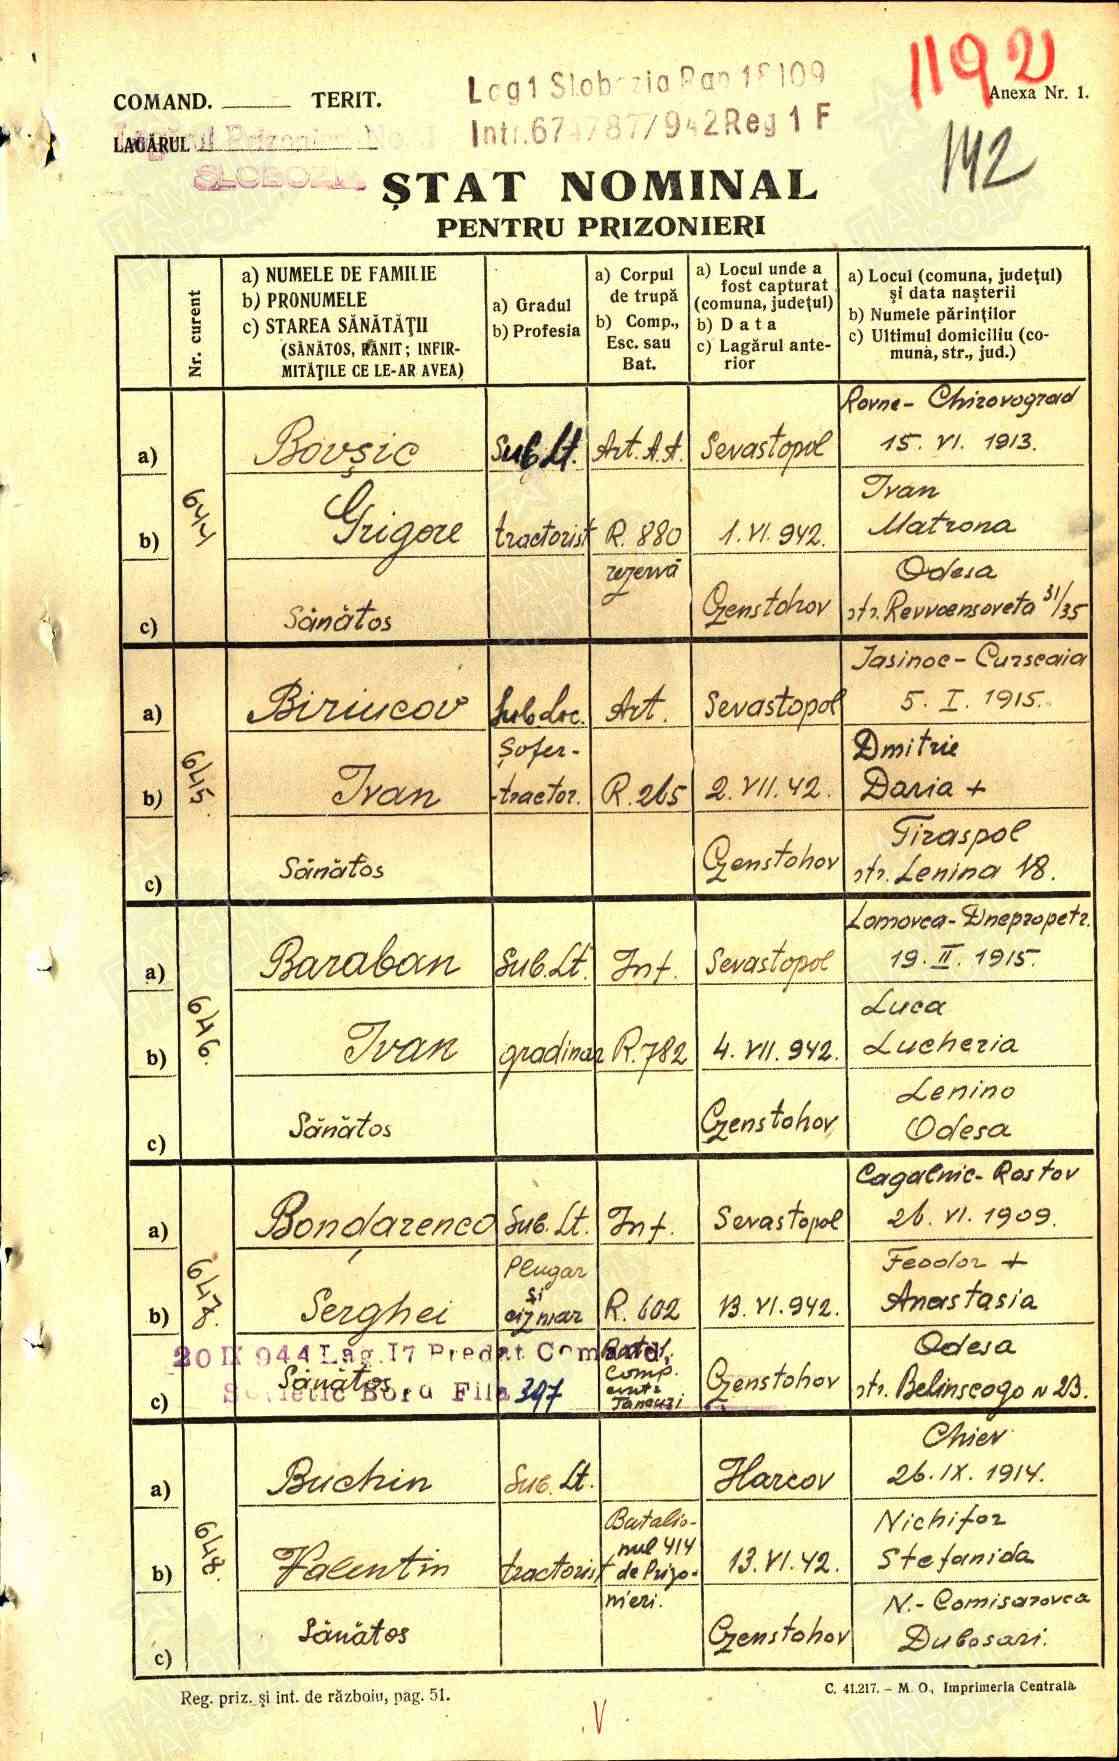 1192
COMAND. TERIT.
Lag 1 Slobozia Rap 18109
Anexa Nr. 1.
LAGĂRUL
Lagărul Prizonieri No. 1
SLOBOZIA
Intr.674787/942 Reg 1 F
142
ȘTAT NOMINAL
PENTRU PRIZONIERI
Nr. curent
a) NUMELE DE FAMILIE
b) PRONUMELE
c) STAREA SĂNĂTĂȚII
(SĂNĂTOS, RĂNIT; INFIR-
MITĂȚILE CE LE-AR AVEA)
a) Gradul
b) Profesia
a) Corpul
de trupă
b) Comp.,
Esc. sau
Bat.
a) Locul unde a
fost capturat
(comuna, județul)
b) Data
c) Lagărul ante-
rior
a) Locul (comuna, județul)
și data nașterii
b) Numele părinților
c) Ultimul domiciliu (co-
muna, str., jud.)
644
a) Bovșic Sub Lt. Art. A.A. Sevastopol
Rovne - Chirovograd
15. VI. 1913.
b) Grigore tractorist R. 880
rezervă
1. VI. 942.
Ivan
Matrona
c) Sănătos Czenstohov
Odesa
str. Revvoensoveta 31/35
645.
a) Biriucov Sub Loc. Art. Sevastopol
Iasinoc - Curscaia
5. I. 1915.
b) Ivan
Șofer-
-tractor.
R. 265 2. VII. 42.
Dmitrie
Daria +
c) Sănătos Czenstohov
Tiraspol
str. Lenina 18.
646.
a) Baraban Sub. Lt. Inf. Sevastopol
Lomovca - Dnepropetr.
19. II. 1915.
b) Ivan gradinar R. 782 4. VII. 942.
Luca
Lucheria
c) Sănătos Czenstohov
Lenino
Odesa
647.
a) Bondarenco Sub. Lt. Inf. Sevastopol
Cagalnic - Rostov
26. VI. 1909.
b) Serghei
Plugar
și
cizmar
R. 602 13. VI. 942.
Feodor +
Anastasia
20 IX 944 Lag. 17 Predat Comand,
Sovietic Bord Fila 397
c) Sănătos
Comp.
Czenstohov
Odesa
str. Belinscogo N 23.
648.
a) Buchin Sub. Lt. Harcov
Chiev
26. IX. 1914.
b) Valentin tractorist
Batalio-
nul 414
de Prizo-
nieri.
13. VI. 42.
Nichifor
Stefanida
c) Sănătos Czenstohov
N. - Comisarovca
Dubosari.
Reg. priz. și int. de războiu, pag. 51.
C. 41.217. - M. O., Imprimeria Centrală.
V